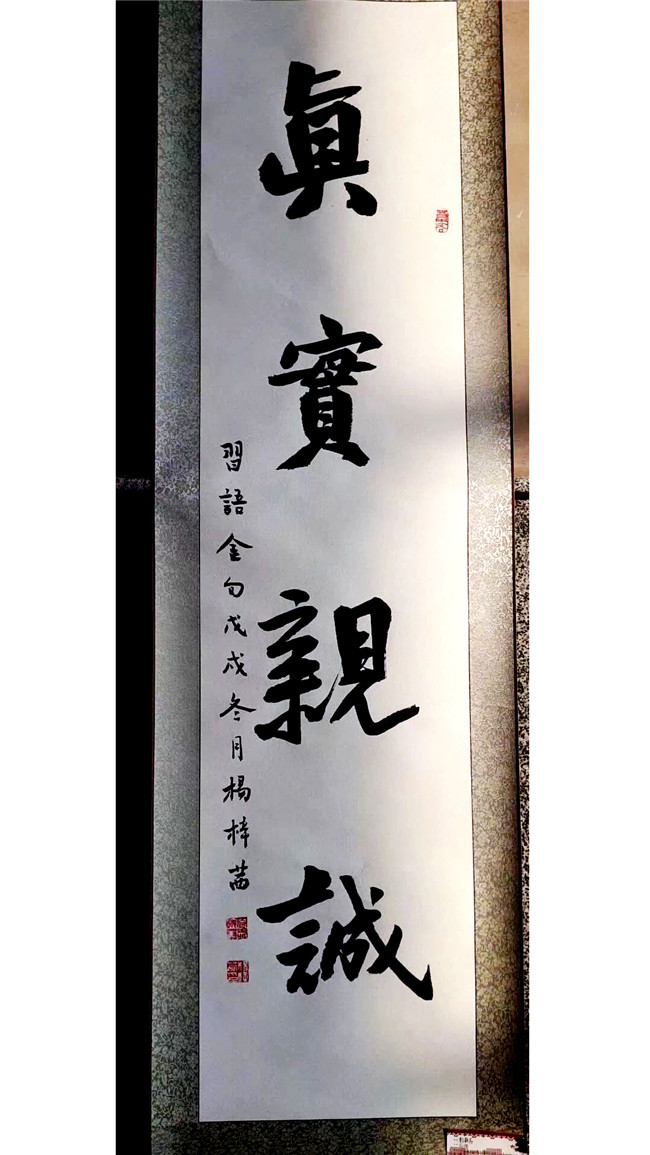 真實親誠
習語金句戊戌冬月楊梓茜